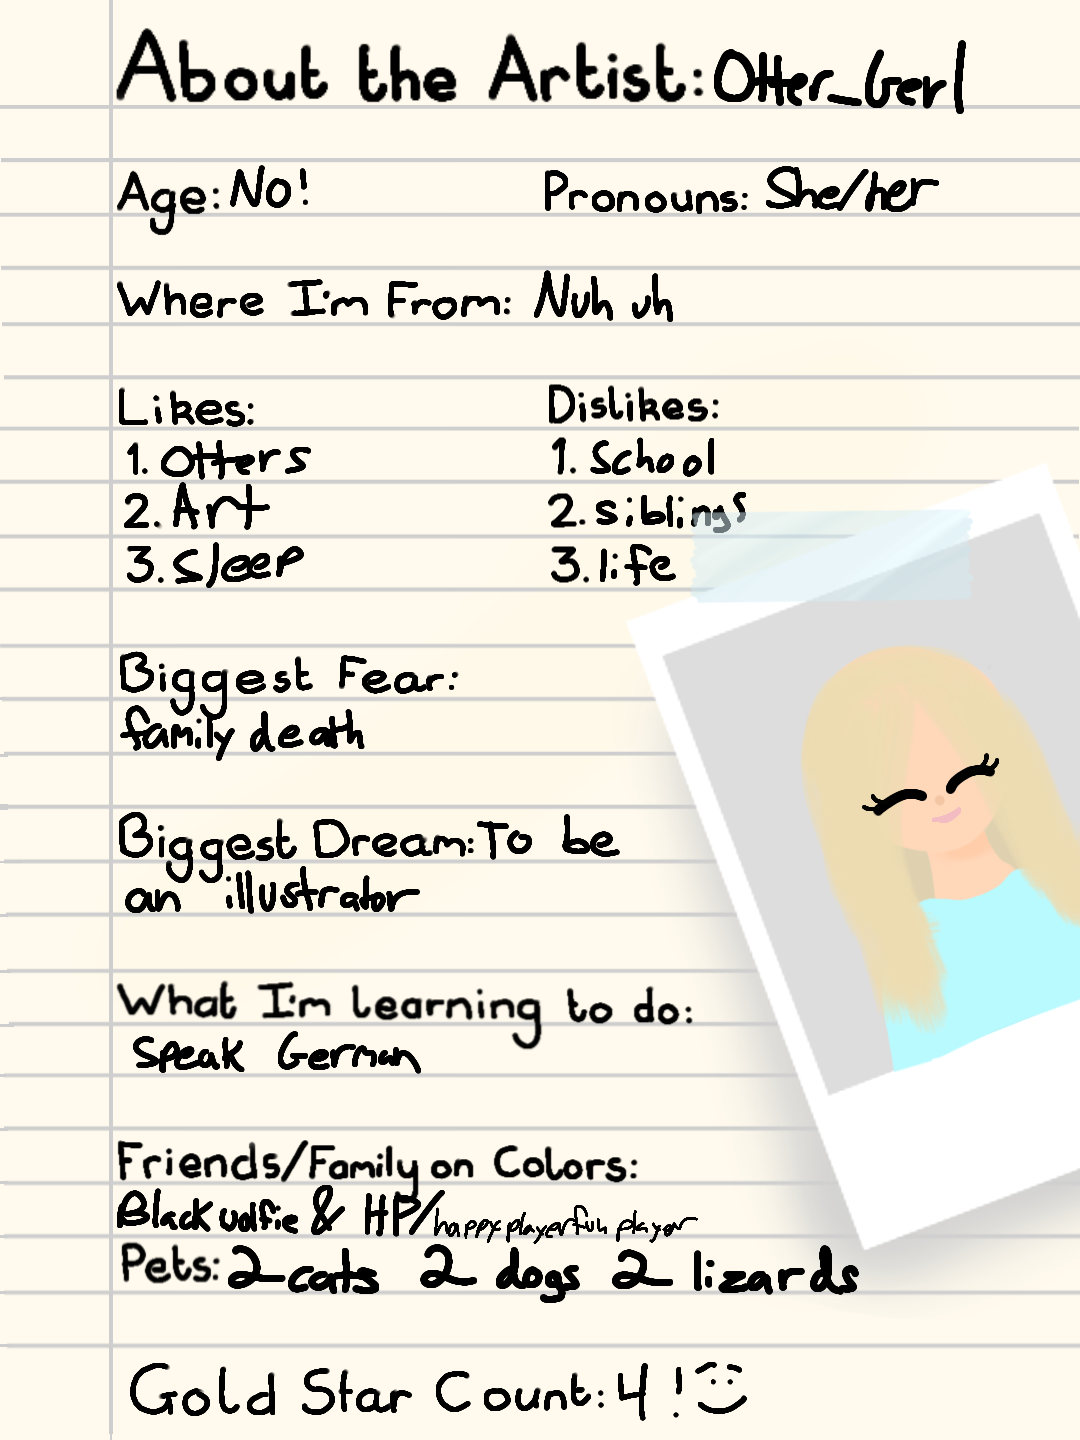 About the Artist: Otter_Gerl
Age: No! Pronouns: She/her
Where I'm From: Nuh uh
Likes: Dislikes:
1. Otters 1. School
2. Art 2. siblings
3. Sleep 3. life
Biggest Fear:
family death
Biggest Dream: To be
an illustrator
What I'm learning to do:
Speak German
Friends/Family on Colors:
Black & HP/happy player fun player
Pets: 2 cats 2 dogs 2 lizards
Gold Star Count: 4 !